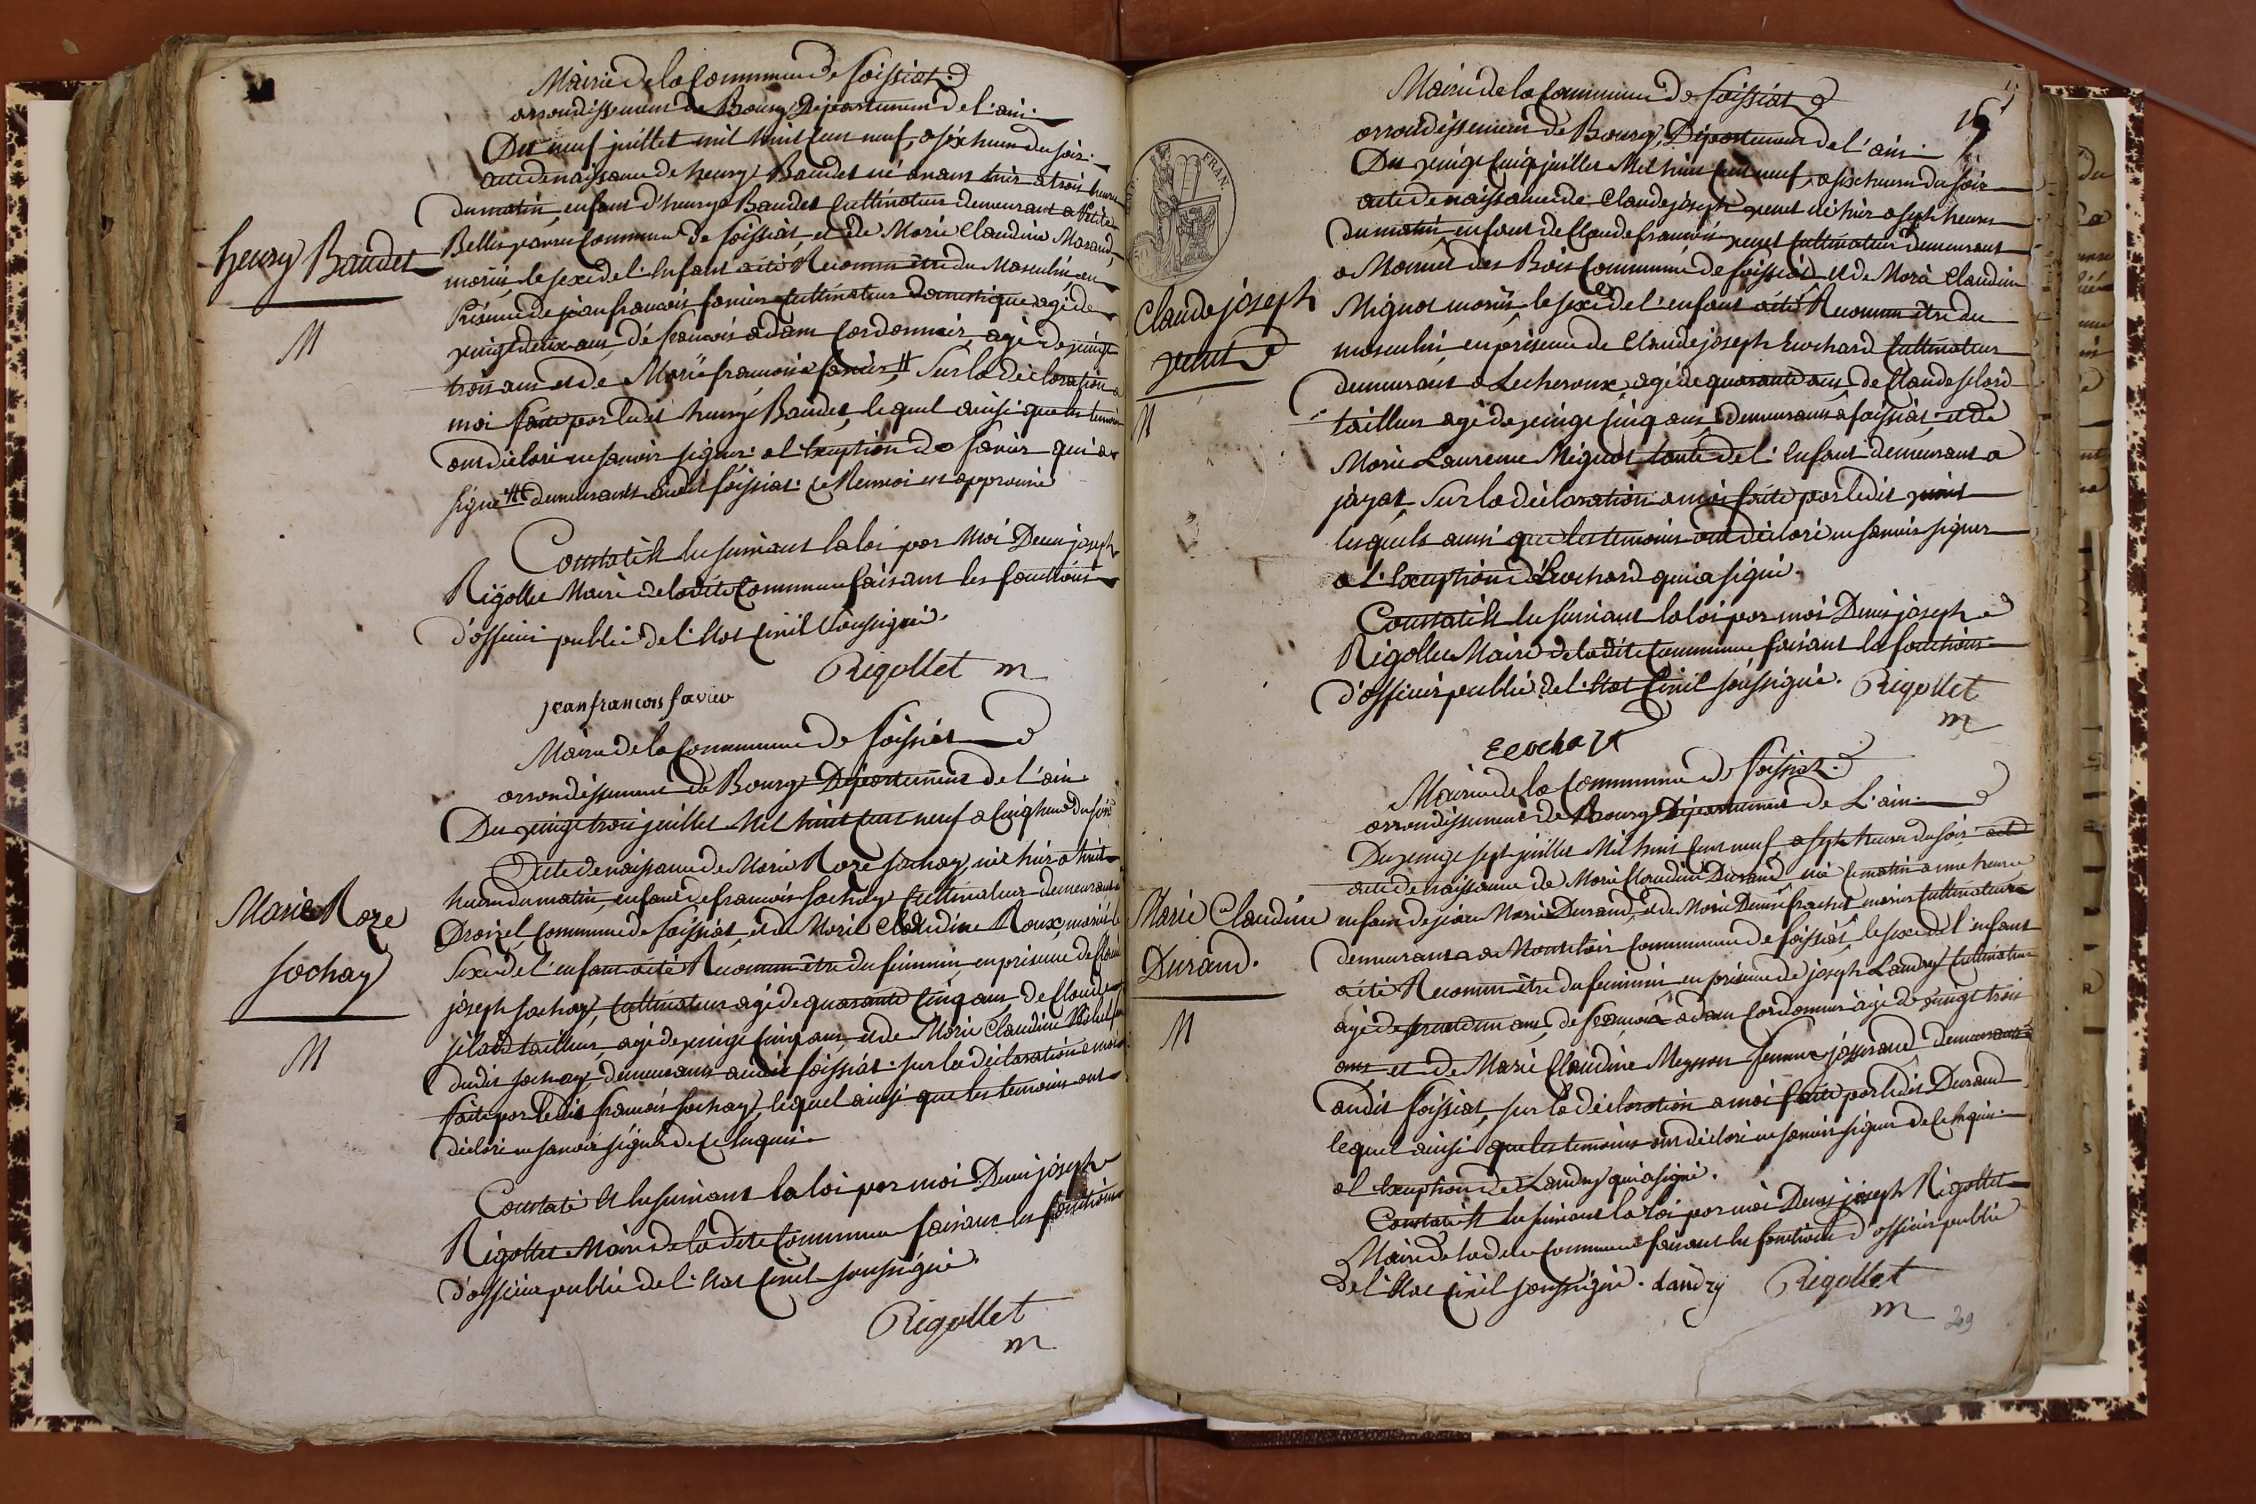 Mairie de la Commune de foissiat
arrondissement de Bourg Département de l'ain.
Du neuf juillet mil huit Cent neuf, a six heures du soir.
acte de naissance de henry Baudet né avant hier a trois heures
du matin, enfant d'henry Baudet Cultivateur demeurant a
commune de foissiat, et de Marie Claudine
mariés, le sexe de l'enfant a été Reconnu être du Masculin, en
Présence de jean francois favier Cultivateur domestique agé de
vingt deux ans, de francois adam Cordonnier, agé de vingt
trois ans et de Marie francoise favier # Sur la déclaration a
moi faite par le dit henry Baudet, lequel ainsi que les temoins
ont déclaré ne savoir signer: a l'exception de favier qui a
signé # demeurants audit foissiat: Ce Renvoi est approuvé
henry Baudet
M
Constaté et lu suivant la loi par Moi Denis joseph
Rigollet Maire de la dite Commune faisant les fonctions
d'officier public de l'Etat Civil soussigné.
Rigollet m
jean francois favier
Mairie de la Commune de foissiat
arrondissement de Bourg Département de l'ain
Du vingt trois juillet Mil huit Cent neuf a Cinq heures du soir
Acte de naissance de Marie Roze sochay, née hier a huit
heures du matin, enfant de francois sochay Cultivateur demeurant a
Commune de foissiat, et de Marie Claudine Roux, mariés, le
Sexe de l'enfant a été Reconnu être du feminin, en présence de Claude
joseph sochay, Cultivateur agé de quarante Cinq ans, de Claude
tailleur, agé de vingt Cinq ans, et de Marie Claudine
dudit sochay, demeurants audit foissiat. sur la déclaration a moi
faite par le dit francois sochay, lequel ainsi que les temoins ont
déclaré ne savoir signer de ce Enquis
Marie Roze
sochay
M
Constaté et lu suivant la loi par moi Denis joseph
Rigollet Maire de la dite Commune faisant les fonctions
d'officier public de l'Etat Civil soussigné.
Rigollet
m
Mairie de la Commune de foissiat
arrondissement de Bourg, Département de l'ain.
Du vingt Cinq juillet Mil huit Cent neuf, a six heures du soir
acte de naissance de Claude joseph né hier a sept heures
du matin enfant de Claude francois Cultivateur demeurant
a des Bois Commune de foissiat et de Marie Claudine
Mignot mariés, le sexe de l'enfant a été Reconnu être du
masculin, en présence de Claude joseph Euchard Cultivateur
demeurant a Lescheroux, agé de quarante ans, de Claude
tailleur agé de vingt Cinq ans, demeurant a foissiat, et de
Marie Laurence Mignot tante de l'enfant demeurant a
jayat, Sur la déclaration a moi faite par le dit
lesquels ainsi que les temoins ont déclaré ne savoir signer
a l'Exception d'Euchard qui a signé.
Claude joseph
M
Constaté et lu suivant la loi par moi Denis joseph
Rigollet Maire de la dite Commune faisant les fonctions
d'officier public de l'Etat Civil soussigné. Rigollet
m
Mairie de la Commune de foissiat
arrondissement de Bourg Département de L'ain.
Du vingt sept juillet Mil huit Cent neuf, a sept heures du soir
acte de naissance de Marie Claudine Durand née le matin a une heure
enfant de jean Marie Durand, et de Marie Denise frachet mariés Cultivateurs
demeurants a Commune de foissiat, le sexe de l'enfant
a été Reconnu être du feminin en présence de joseph Landry Cultivateur
agé de ans, de francois adam Cordonnier agé de vingt trois
ans, et de Marie Claudine femme demeurants
audit foissiat, sur la déclaration a moi faite par ledit Durand
lequel ainsi que les temoins ont déclaré ne savoir signer de Ce Enquis.
a l'Exception de Landry qui a signé.
Marie Claudine
Durand.
M
Constaté et lu suivant la loi par moi Denis joseph Rigollet
Maire de la dite Commune faisant les fonctions d'officier public
de l'Etat Civil soussigné. Landry Rigollet
m
29